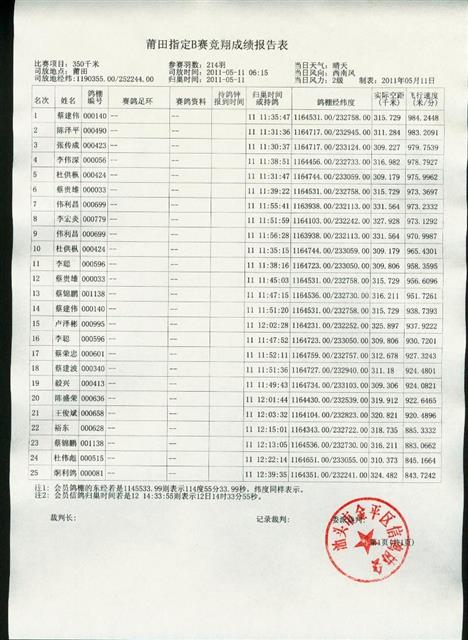 莆田指定B赛竞翔成绩报告表
比赛项目: 350千米 参赛羽数: 214羽 当日天气: 晴天
司放地点: 莆田 司放时间: 2011-05-11 06:15 当日风向: 西南风
司放地经纬: 1190355.00/252244.00 归巢时间: 2011-05-11 当日风力: 2级 制表: 2011年05月11日
名次 姓名 鸽棚编号 赛鸽足环 赛鸽资料 待鸽钟报到时间 归巢时间或持鸽 鸽棚经纬度 实际空距(千米) 飞行速度(米/分)
1 蔡建伟 000140 -- -- 11 11:35:47 1164531.00/232758.00 315.729 984.2448
2 陈泽平 000490 -- -- 11 11:31:36 1164717.00/232945.00 311.284 983.2091
3 张传成 000423 -- -- 11 11:30:47 1164730.00/233124.00 309.227 979.7539
4 李伟深 000056 -- -- 11 11:38:51 1164456.00/232733.00 316.982 978.7927
5 杜供枫 000424 -- -- 11 11:31:47 1164744.00/233059.00 309.179 975.9962
6 蔡贵雄 000033 -- -- 11 11:39:22 1164531.00/232758.00 315.729 973.3697
7 伟利昌 000699 -- -- 11 11:55:41 1163938.00/232113.00 331.564 973.2332
8 李宏炎 000779 -- -- 11 11:51:59 1164103.00/232242.00 327.928 973.1292
9 伟利昌 000699 -- -- 11 11:56:28 1163938.00/232113.00 331.564 970.9987
10 杜供枫 000424 -- -- 11 11:35:15 1164744.00/233059.00 309.179 965.4301
11 李聪 000596 -- -- 11 11:38:16 1164723.00/233050.00 309.806 958.3595
12 蔡贵雄 000033 -- -- 11 11:45:03 1164531.00/232758.00 315.729 956.6096
13 蔡锦鹏 001138 -- -- 11 11:47:15 1164536.00/232730.00 316.211 951.7261
14 蔡建伟 000140 -- -- 11 11:51:20 1164531.00/232758.00 315.729 938.7393
15 卢泽彬 000995 -- -- 11 12:02:28 1164231.00/232252.00 325.897 937.9222
16 李聪 000596 -- -- 11 11:47:52 1164723.00/233050.00 309.806 930.7201
17 蔡荣忠 000601 -- -- 11 11:52:10 1164759.00/232757.00 312.678 927.3243
18 蔡建波 000340 -- -- 11 11:51:36 1164727.00/232940.00 311.18 924.4801
19 毅兴 000413 -- -- 11 11:49:43 1164734.00/233103.00 309.306 924.0821
20 陈盛荣 000636 -- -- 11 12:01:44 1164430.00/232539.00 319.912 922.6465
21 王俊斌 000658 -- -- 11 12:03:32 1164104.00/232823.00 320.821 920.4896
22 裕东 000628 -- -- 11 12:15:01 1164343.00/232722.00 318.735 885.3332
23 蔡锦鹏 001138 -- -- 11 12:13:05 1164536.00/232730.00 316.211 883.0662
24 杜伟彪 000515 -- -- 11 12:22:14 1164651.00/233055.00 310.373 845.1664
25 炯利鸽 000081 -- -- 11 12:39:35 1164351.00/232241.00 324.482 843.7242
注1: 会员鸽棚的东经若是1145533.99则表示114度55分33.99秒, 纬度同样表示。
注2: 会员信鸽归巢时间若是12 14:33:55则表示12日14时33分55秒。
裁判长: 记录裁判:
第1页(共1页)
汕头市金平区信鸽协会